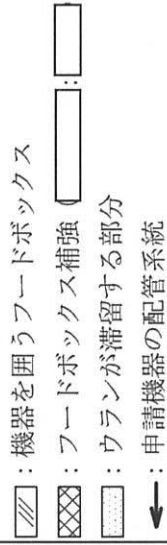 ：機器を囲うフードボックス
：フードボックス補強
：ウランが滞留する部分
：申請機器の配管系統